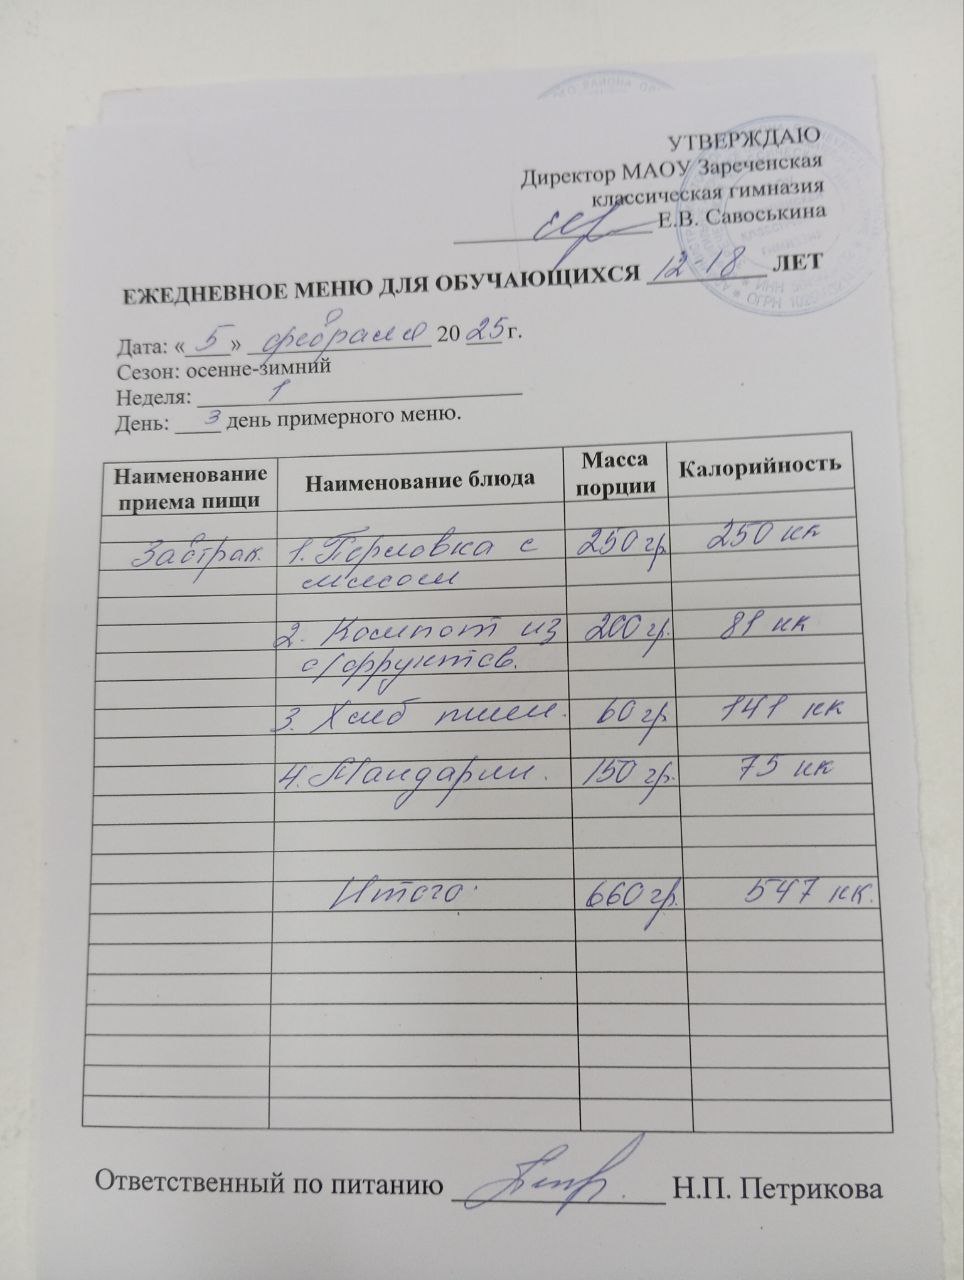 УТВЕРЖДАЮ
Директор МАОУ Зареченская
классическая гимназия
Е.В. Савоськина
ЕЖЕДНЕВНОЕ МЕНЮ ДЛЯ ОБУЧАЮЩИХСЯ 12-18 ЛЕТ
Дата: «5» февраля 2025 г.
Сезон: осенне-зимний
Неделя: 1
День: 3 день примерного меню.
Наименование приема пищи Наименование блюда Масса порции Калорийность
Завтрак. 1. Перловка с 250 гр. 250 кк
мясом
2. Компот из 200 гр. 81 кк
с/фруктов.
3. Хлеб пшен. 60 гр 141 кк
4. Мандарин. 150 гр. 75 кк
Итого. 660 гр. 547 кк.
Ответственный по питанию Н.П. Петрикова